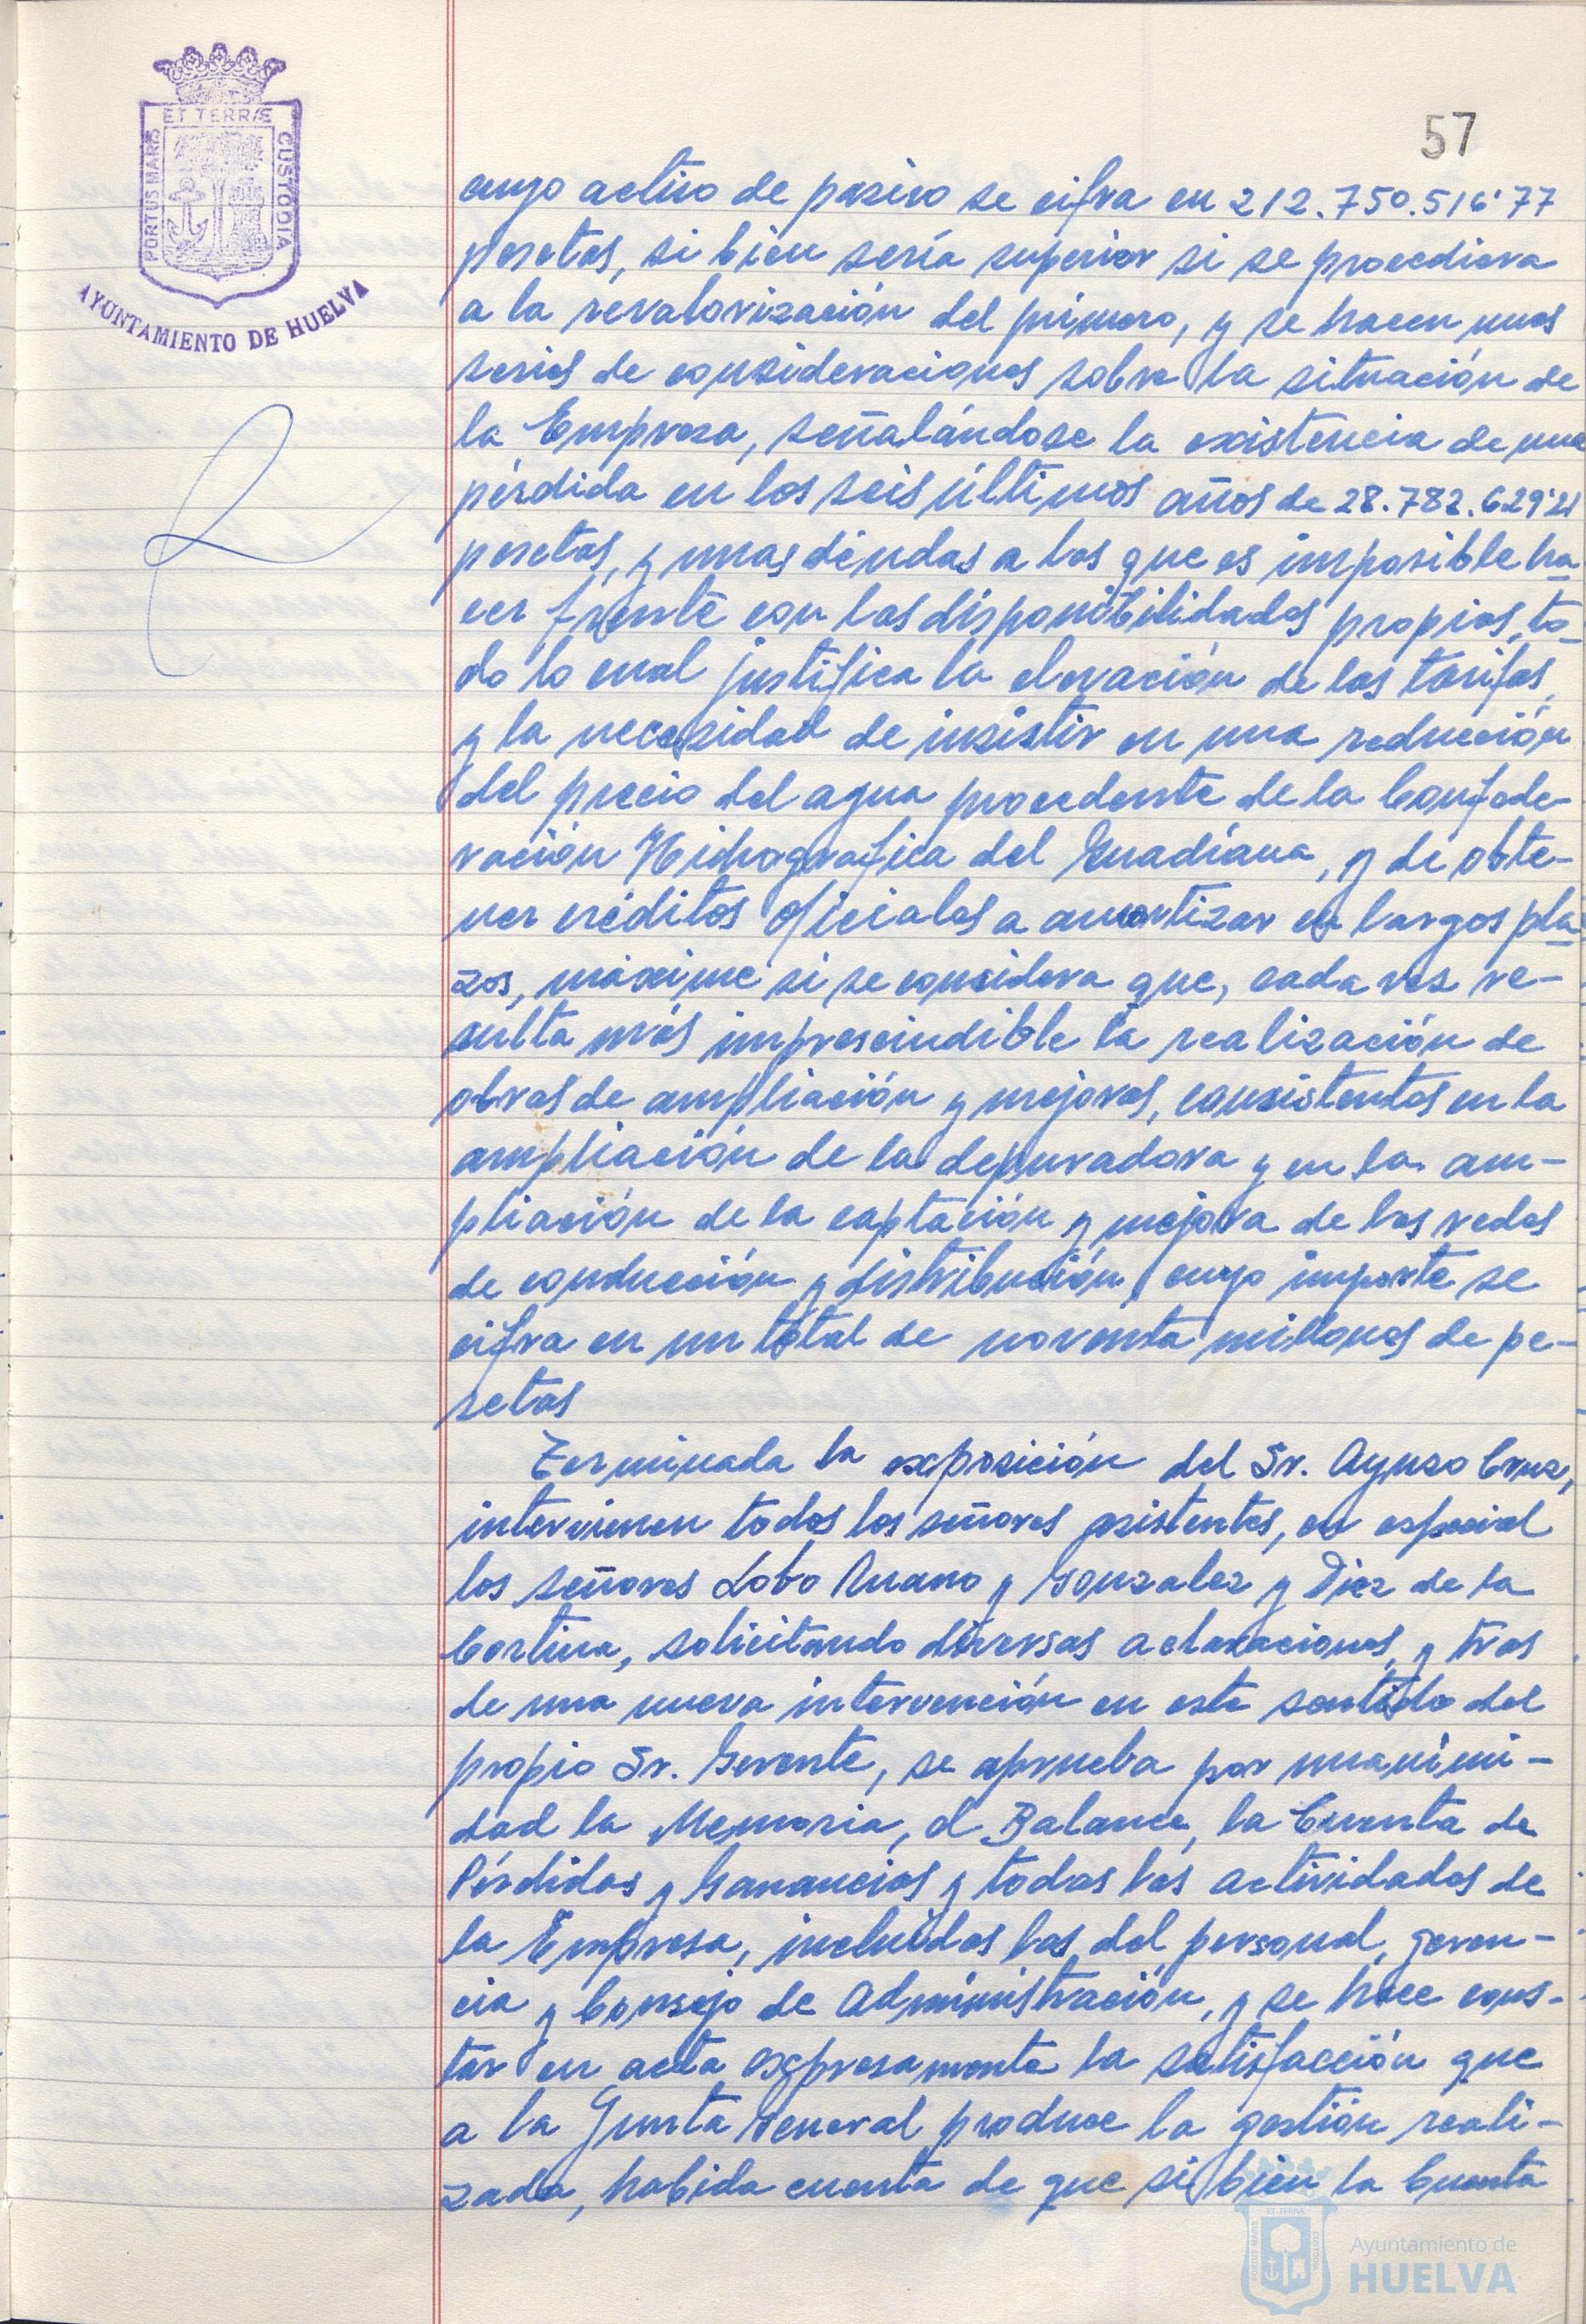 ET TERRÆ
PORTUS MARIS
CUSTODIA
AYUNTAMIENTO DE HUELVA
57
cuyo activo de pasivo se cifra en 212.750.516'77
pesetas, si bien sería superior si se procediera
a la revalorización del primero, y se hacen unas
series de consideraciones sobre la situación de
la Empresa, señalándose la existencia de una
pérdida en los seis últimos años de 28.782.629'21
pesetas, y unas deudas a las que es imposible ha-
cer frente con las disponibilidades propias, to-
do lo cual justifica la elevación de las tarifas,
y la necesidad de insistir en una reducción
del precio del agua procedente de la Confede-
ración Hidrografica del Guadiana, y de obte-
ner créditos oficiales a amortizar en largos pla-
zos, máxime si se considera que, cada vez re-
sulta más imprescindible la realización de
obras de ampliación y mejoras, consistentes en la
ampliación de la depuradora y en la am-
pliación de la captación y mejora de las redes
de conducción y distribución, cuyo importe se
cifra en un total de noventa millones de pe-
setas
Terminada la exposición del Sr. Ayuso Cruz,
intervienen todos los señores asistentes, en especial
los señores Lobo Ruano y Gonzalez y Diez de la
Cortina, solicitando diversas aclaraciones, y tras
de una nueva intervención en este sentido del
propio Sr. Gerente, se aprueba por unanimi-
dad la Memoria, el Balance, la Cuenta de
Pérdidas y Ganancias y todas las actividades de
la Empresa, incluidas las del personal, geren-
cia y Consejo de Administración, y se hace cons-
tar en acta expresamente la satisfacción que
a la Junta General produce la gestión reali-
zada, habida cuenta de que si bien la Cuenta
Ayuntamiento de
HUELVA